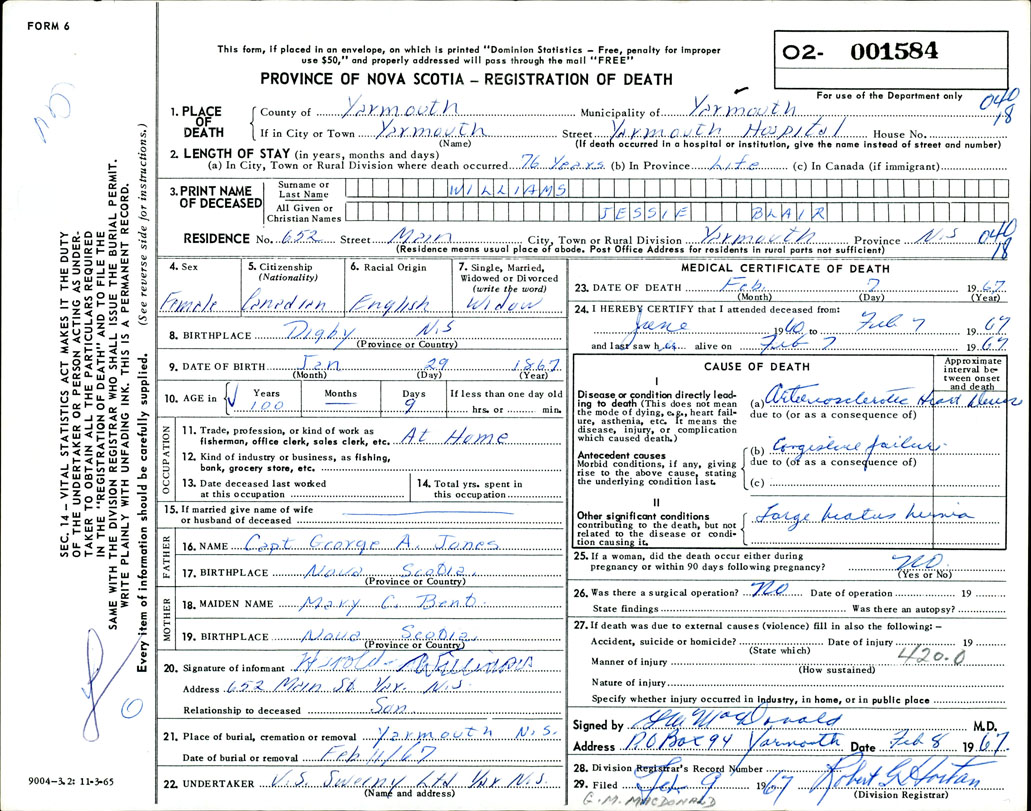 FORM 6
This form, if placed in an envelope, on which is printed "Dominion Statistics – Free, penalty for improper
use $50," and properly addressed will pass through the mail "FREE"
PROVINCE OF NOVA SCOTIA – REGISTRATION OF DEATH
02- 001584
For use of the Department only
040
18
1. PLACE OF DEATH
County of Yarmouth Municipality of Yarmouth
If in City or Town Yarmouth Street Yarmouth Hospital House No.
(Name) (If death occurred in a hospital or institution, give the name instead of street and number)
2. LENGTH OF STAY (in years, months and days)
(a) In City, Town or Rural Division where death occurred 76 Years (b) In Province Life (c) In Canada (if immigrant)
3. PRINT NAME OF DECEASED
Surname or Last Name WILLIAMS
All Given or Christian Names JESSIE BLAIR
RESIDENCE No. 652 Street Main City, Town or Rural Division Yarmouth Province N.S
040
18
(Residence means usual place of abode. Post Office Address for residents in rural parts not sufficient)
4. Sex
Female
5. Citizenship (Nationality)
Canadian
6. Racial Origin
English
7. Single, Married, Widowed or Divorced (write the word)
Widow
8. BIRTHPLACE Digby N.S
(Province or Country)
9. DATE OF BIRTH Jan 29 1867
(Month) (Day) (Year)
10. AGE in Years Months Days If less than one day old
100 — 9 hrs. or min.
OCCUPATION
11. Trade, profession, or kind of work as
fisherman, office clerk, sales clerk, etc. At Home
12. Kind of industry or business, as fishing,
bank, grocery store, etc.
13. Date deceased last worked
at this occupation
14. Total yrs. spent in
this occupation
15. If married give name of wife
or husband of deceased
FATHER
16. NAME Capt George A. Jones
17. BIRTHPLACE Nova Scotia
(Province or Country)
MOTHER
18. MAIDEN NAME Mary C. Bent
19. BIRTHPLACE Nova Scotia
(Province or Country)
20. Signature of informant Harold Williams
Address 652 Main St Yar. N.S.
Relationship to deceased Son
21. Place of burial, cremation or removal Yarmouth N.S.
Date of burial or removal Feb 11/67
22. UNDERTAKER V.S. Sweeny Ltd Yar N.S.
(Name and address)
MEDICAL CERTIFICATE OF DEATH
23. DATE OF DEATH Feb. 7 1967
(Month) (Day) (Year)
24. I HEREBY CERTIFY that I attended deceased from:
June 1960 to Feb 7 1967
and last saw her alive on Feb 7 1967
CAUSE OF DEATH
Approximate interval between onset and death
I
Disease or condition directly lead-
ing to death (This does not mean
the mode of dying, e.g., heart fail-
ure, asthenia, etc. It means the
disease, injury, or complication
which caused death.)
(a) Arteriosclerotic Heart Disease
due to (or as a consequence of)
Antecedent causes
Morbid conditions, if any, giving
rise to the above cause, stating
the underlying condition last.
(b) Congestive failure
due to (or as a consequence of)
(c)
II
Other significant conditions
contributing to the death, but not
related to the disease or condi-
tion causing it.
Large hiatus hernia
25. If a woman, did the death occur either during
pregnancy or within 90 days following pregnancy? NO
(Yes or No)
26. Was there a surgical operation? NO Date of operation 19
State findings Was there an autopsy?
27. If death was due to external causes (violence) fill in also the following: –
Accident, suicide or homicide? Date of injury 19
(State which)
420.0
Manner of injury
(How sustained)
Nature of injury
Specify whether injury occurred in industry, in home, or in public place
Signed by G M MacDonald M.D.
Address P.O Box 94 Yarmouth Date Feb 8 1967
28. Division Registrar's Record Number
29. Filed Feb. 9 1967 Robert G Horton
(Division Registrar)
G. M. MACDONALD
SEC. 14 – VITAL STATISTICS ACT MAKES IT THE DUTY
OF THE UNDERTAKER OR PERSON ACTING AS UNDER-
TAKER TO OBTAIN ALL THE PARTICULARS REQUIRED
IN THE "REGISTRATION OF DEATH" AND TO FILE THE
SAME WITH THE DIVISION REGISTRAR WHO SHALL ISSUE THE BURIAL PERMIT.
WRITE PLAINLY WITH UNFADING INK. THIS IS A PERMANENT RECORD.
Every item of information should be carefully supplied. (See reverse side for instructions.)
9004-3.2: 11-3-65